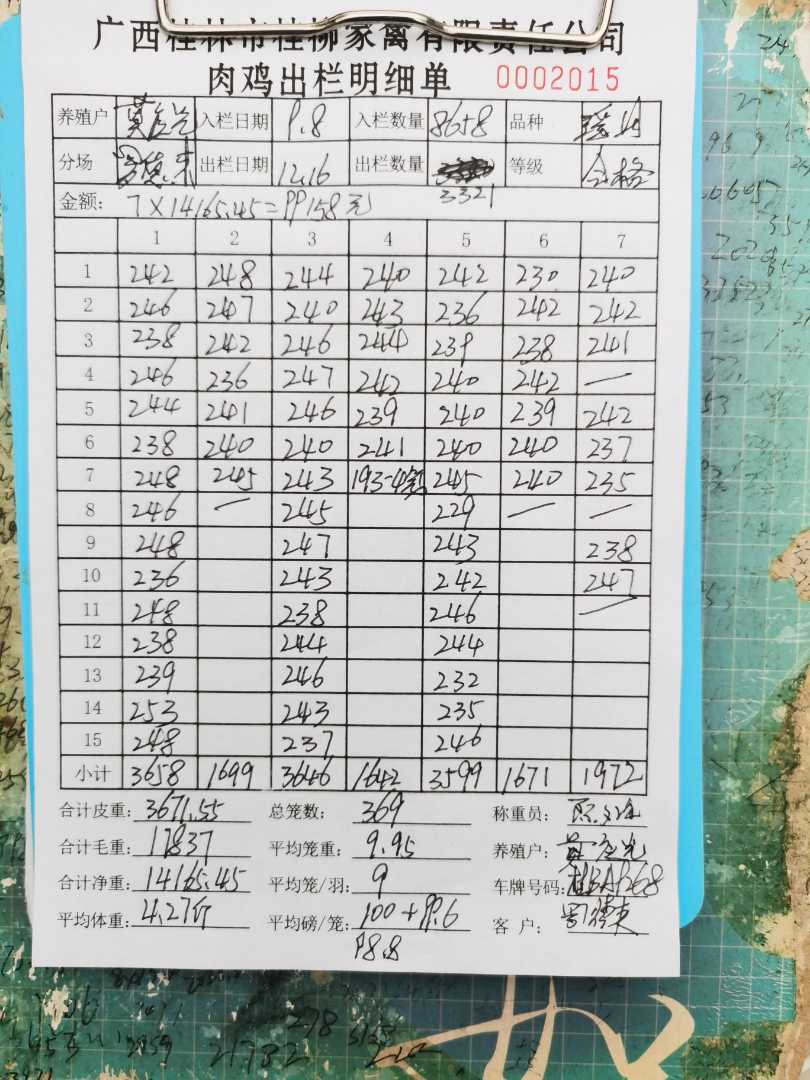 广西桂林市桂柳家禽有限责任公司
肉鸡出栏明细单 0002015
养殖户 入栏日期 9.8 入栏数量 8658 品种 瑶鸡
分场 出栏日期 12.16 出栏数量 3321 等级 合格
金额: 7×14165.45=99158元
1 2 3 4 5 6 7
1 242 248 244 240 242 230 240
2 246 247 240 243 236 242 242
3 238 242 246 244 239 238 241
4 246 236 247 242 240 242 —
5 244 241 246 239 240 239 242
6 238 240 240 241 240 240 237
7 248 245 243 193-4笼 245 240 235
8 246 — 245 229 — —
9 248 247 243 238
10 236 243 242 247
11 248 238 246 —
12 238 244 244
13 239 246 232
14 253 243 235
15 248 237 246
小计 3658 1699 3646 1642 3599 1671 1972
合计皮重: 3671.55 总笼数: 369 称重员:
合计毛重: 17837 平均笼重: 9.95 养殖户:
合计净重: 14165.45 平均笼/羽: 9 车牌号码:
平均体重: 4.27斤 平均磅/笼: 100+99.6 客户:
98.8